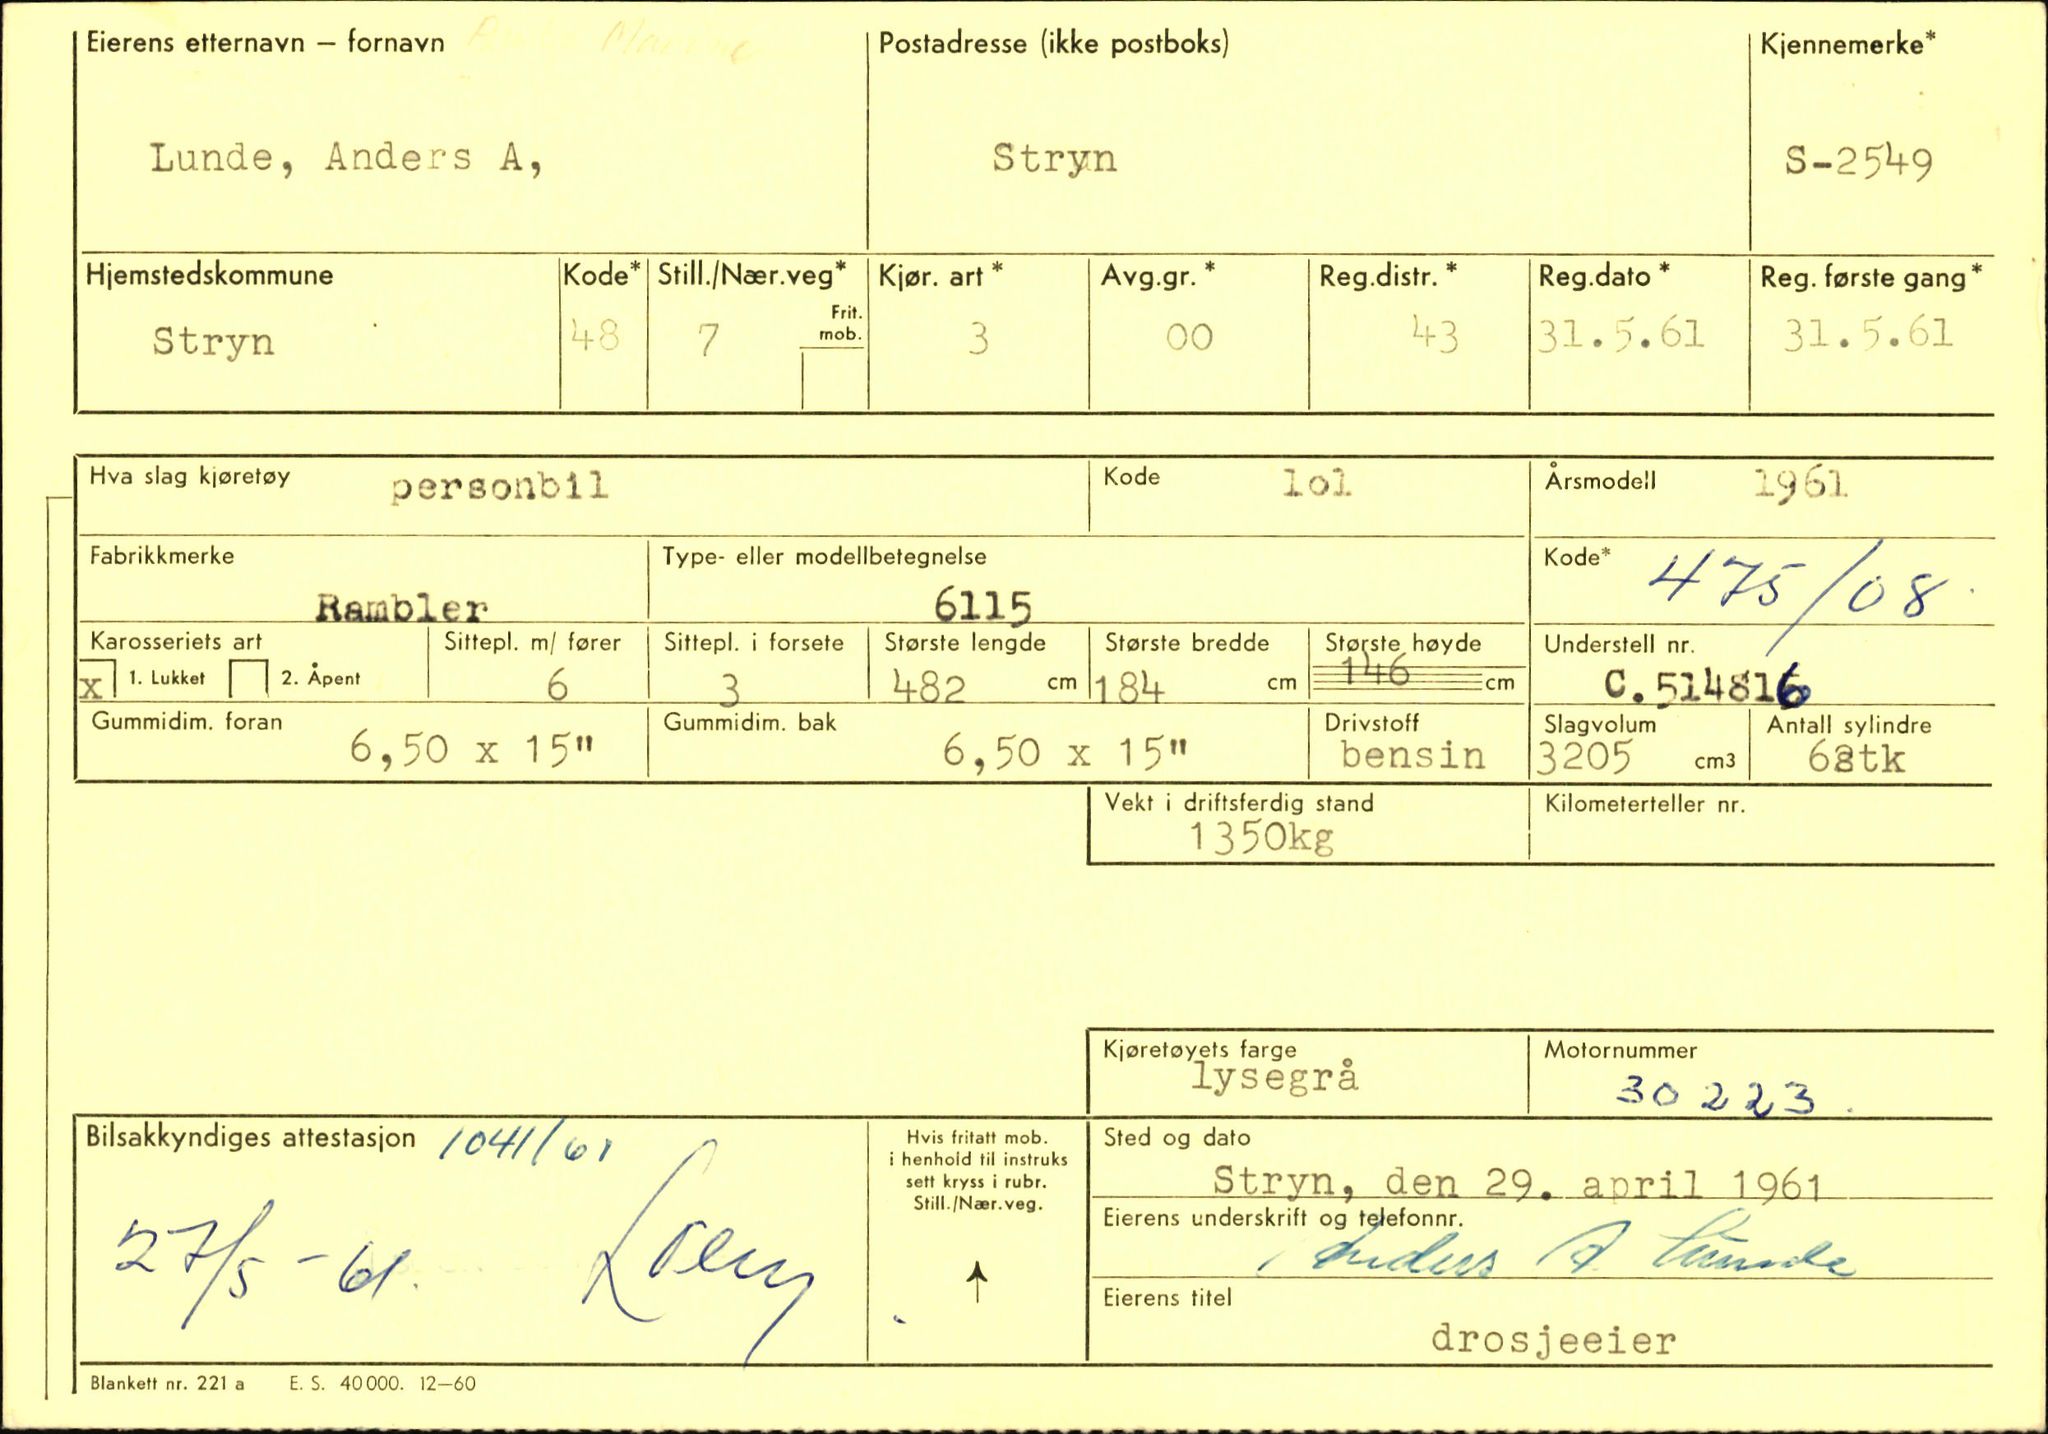 Eierens etternavn – fornavn
Lunde, Anders A,
Postadresse (ikke postboks)
Stryn
Kjennemerke*
S-2549
Hjemstedskommune
Stryn
Kode*
48
Still./Nær.veg*
7
Frit.
mob.
Kjør. art *
3
Avg.gr. *
00
Reg.distr. *
43
Reg.dato *
31.5.61
Reg. første gang *
31.5.61
Hva slag kjøretøy personbil
Kode lol
Årsmodell 1961
Fabrikkmerke
Rambler
Type- eller modellbetegnelse
6115
Kode* 475/08
Karosseriets art
x 1. Lukket 2. Åpent
Sittepl. m/ fører
6
Sittepl. i forsete
3
Største lengde
482 cm
Største bredde
184 cm
Største høyde
146 cm
Understell nr.
C.514816
Gummidim. foran
6,50 x 15"
Gummidim. bak
6,50 x 15"
Drivstoff
bensin
Slagvolum
3205 cm3
Antall sylindre
6stk
Vekt i driftsferdig stand
1350kg
Kilometerteller nr.
Kjøretøyets farge
lysegrå
Motornummer
30223.
Bilsakkyndiges attestasjon 1041/61
27/5-61.
Hvis fritatt mob.
i henhold til instruks
sett kryss i rubr.
Still./Nær.veg.
Sted og dato
Stryn, den 29. april 1961
Eierens underskrift og telefonnr.
Anders A. Lunde
Eierens titel
drosjeeier
Blankett nr. 221 a E. S. 40000. 12–60